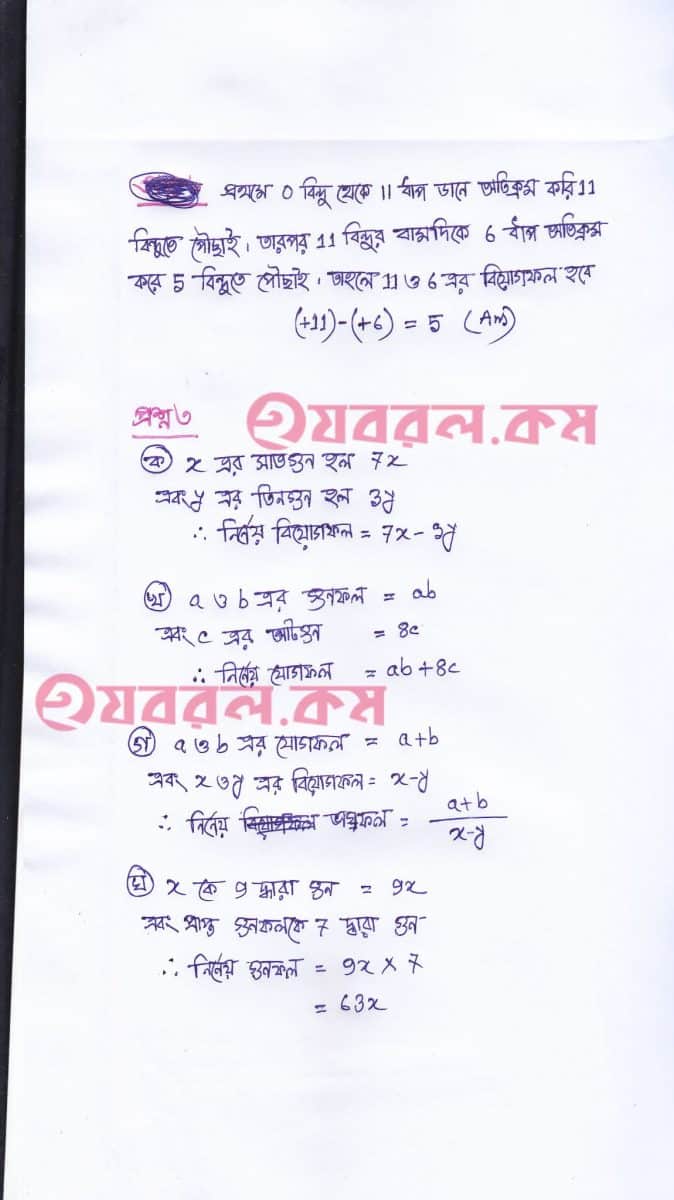 প্রথমে 0 বিন্দু থেকে 11 ধাপ ডানে অতিক্রম করি 11
বিন্দুতে পৌছাই। তারপর 11 বিন্দুর বামদিকে 6 ধাপ অতিক্রম
করে 5 বিন্দুতে পৌছাই। তাহলে 11 ও 6 এর বিয়োগফল হবে
(+11)-(+6) = 5 (Ans)
প্রশ্ন ৩
হযবরল.কম
ক x এর সাতগুন হল 7x
এবং y এর তিনগুন হল 3y
∴ নির্নেয় বিয়োগফল = 7x - 3y
খ a ও b এর গুনফল = ab
এবং c এর আটগুন = 8c
∴ নির্নেয় যোগফল = ab + 8c
হযবরল.কম
গ a ও b এর যোগফল = a+b
এবং x ও y এর বিয়োগফল = x-y
∴ নির্নেয় বিয়োগফল ভাগফল = a+b / x-y
ঘ x কে 9 দ্বারা গুন = 9x
এবং প্রাপ্ত গুনফলকে 7 দ্বারা গুন
∴ নির্নেয় গুনফল = 9x × 7
= 63x